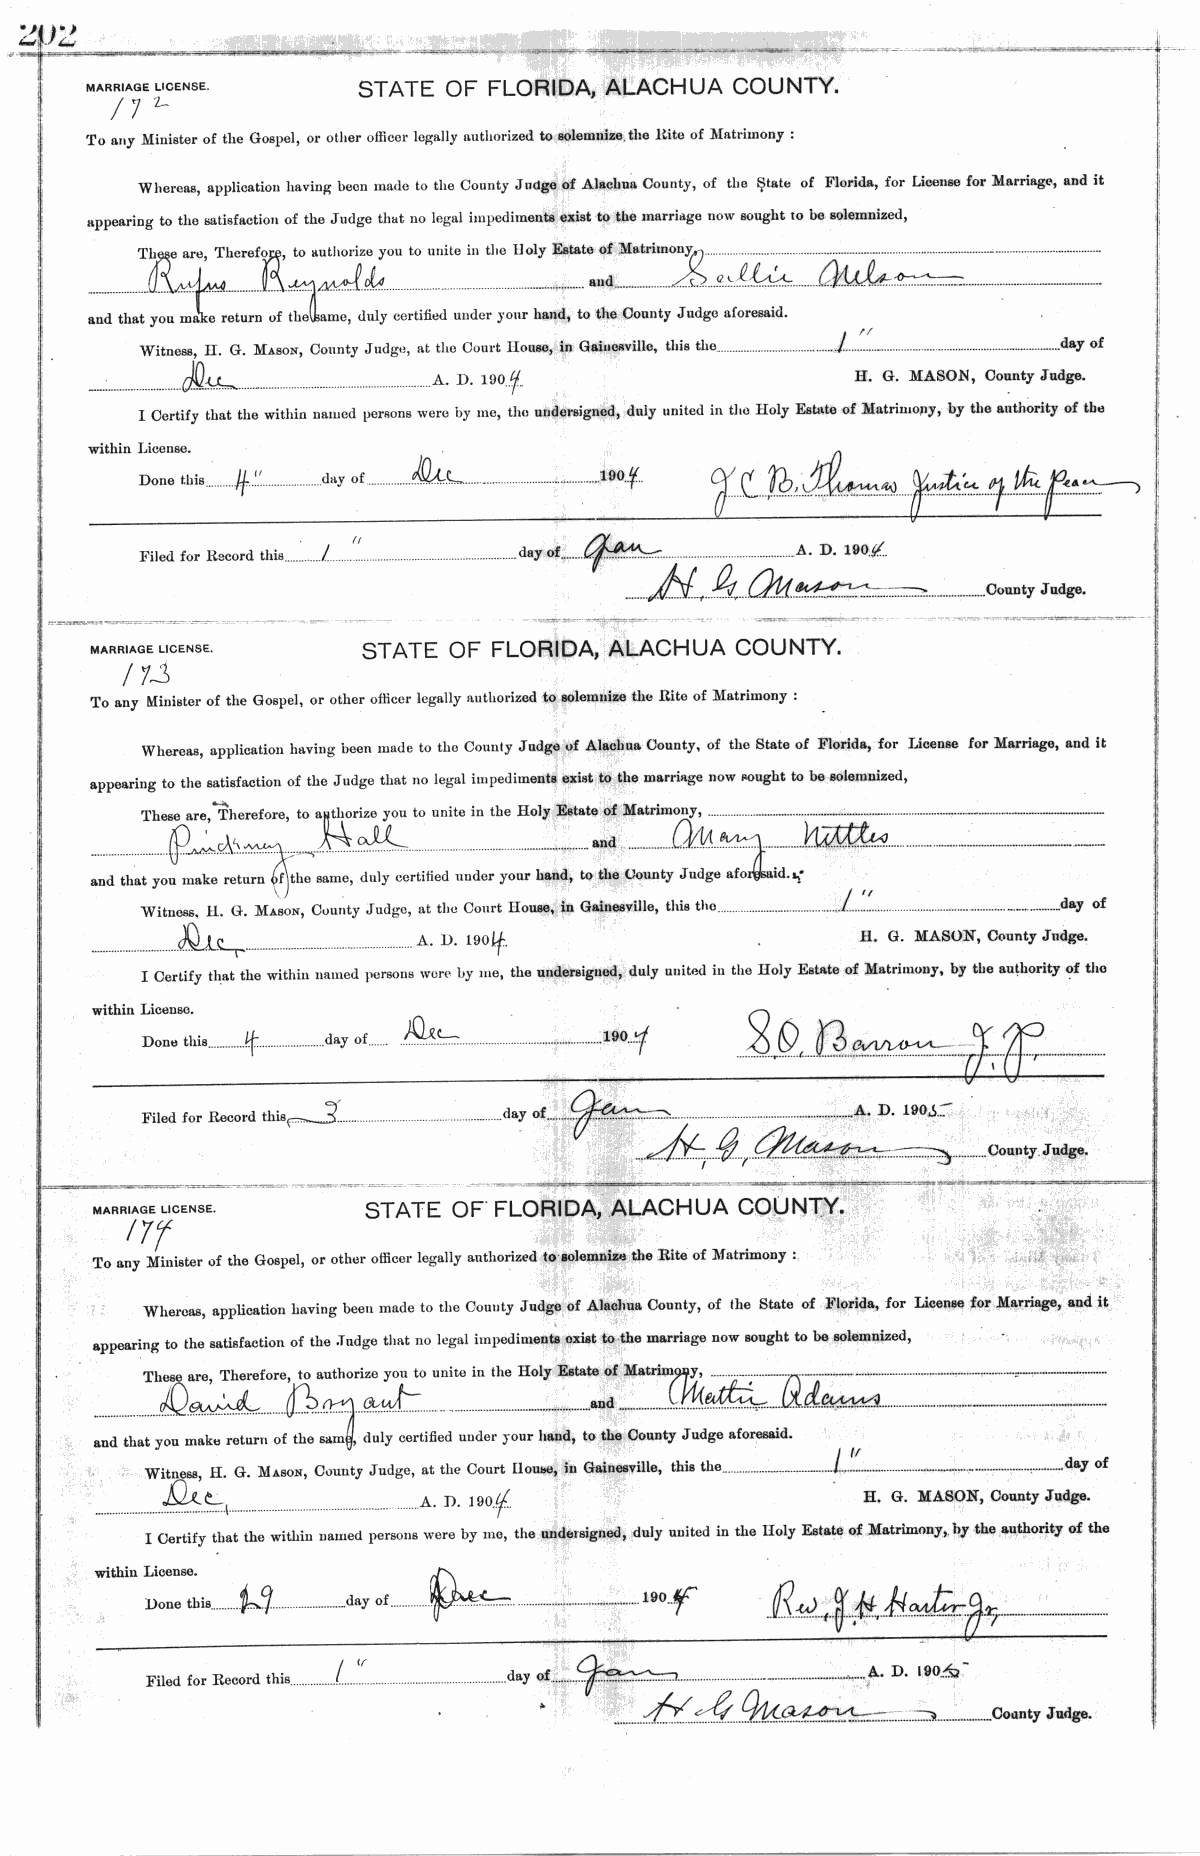 202
MARRIAGE LICENSE. STATE OF FLORIDA, ALACHUA COUNTY.
172
To any Minister of the Gospel, or other officer legally authorized to solemnize the Rite of Matrimony :
Whereas, application having been made to the County Judge of Alachua County, of the State of Florida, for License for Marriage, and it
appearing to the satisfaction of the Judge that no legal impediments exist to the marriage now sought to be solemnized,
These are, Therefore, to authorize you to unite in the Holy Estate of Matrimony,
Rufus Reynolds and Sallie Nelson
and that you make return of the same, duly certified under your hand, to the County Judge aforesaid.
Witness, H. G. MASON, County Judge, at the Court House, in Gainesville, this the 1" day of
Dec A. D. 1904 H. G. MASON, County Judge.
I Certify that the within named persons were by me, the undersigned, duly united in the Holy Estate of Matrimony, by the authority of the
within License.
Done this 4" day of Dec 1904 J C B. Thomas Justice of the Peace
Filed for Record this 1" day of Jan A. D. 1904
H. G. Mason County Judge.
MARRIAGE LICENSE. STATE OF FLORIDA, ALACHUA COUNTY.
173
To any Minister of the Gospel, or other officer legally authorized to solemnize the Rite of Matrimony :
Whereas, application having been made to the County Judge of Alachua County, of the State of Florida, for License for Marriage, and it
appearing to the satisfaction of the Judge that no legal impediments exist to the marriage now sought to be solemnized,
These are, Therefore, to authorize you to unite in the Holy Estate of Matrimony,
Pinckney Hall and Mary Nettles
and that you make return of the same, duly certified under your hand, to the County Judge aforesaid.
Witness, H. G. MASON, County Judge, at the Court House, in Gainesville, this the 1" day of
Dec, A. D. 1904. H. G. MASON, County Judge.
I Certify that the within named persons were by me, the undersigned, duly united in the Holy Estate of Matrimony, by the authority of the
within License.
Done this 4 day of Dec 1904 S. O. Barron J. P.
Filed for Record this 3 day of Jan A. D. 1905
H. G. Mason County Judge.
MARRIAGE LICENSE. STATE OF FLORIDA, ALACHUA COUNTY.
174
To any Minister of the Gospel, or other officer legally authorized to solemnize the Rite of Matrimony :
Whereas, application having been made to the County Judge of Alachua County, of the State of Florida, for License for Marriage, and it
appearing to the satisfaction of the Judge that no legal impediments exist to the marriage now sought to be solemnized,
These are, Therefore, to authorize you to unite in the Holy Estate of Matrimony,
David Bryant and Mattie Adams
and that you make return of the same, duly certified under your hand, to the County Judge aforesaid.
Witness, H. G. MASON, County Judge, at the Court House, in Gainesville, this the 1" day of
Dec, A. D. 1904 H. G. MASON, County Judge.
I Certify that the within named persons were by me, the undersigned, duly united in the Holy Estate of Matrimony, by the authority of the
within License.
Done this 29 day of Dec 1904 Rev. J. H. Harter Jr,
Filed for Record this 1" day of Jan A. D. 1905
H G Mason County Judge.